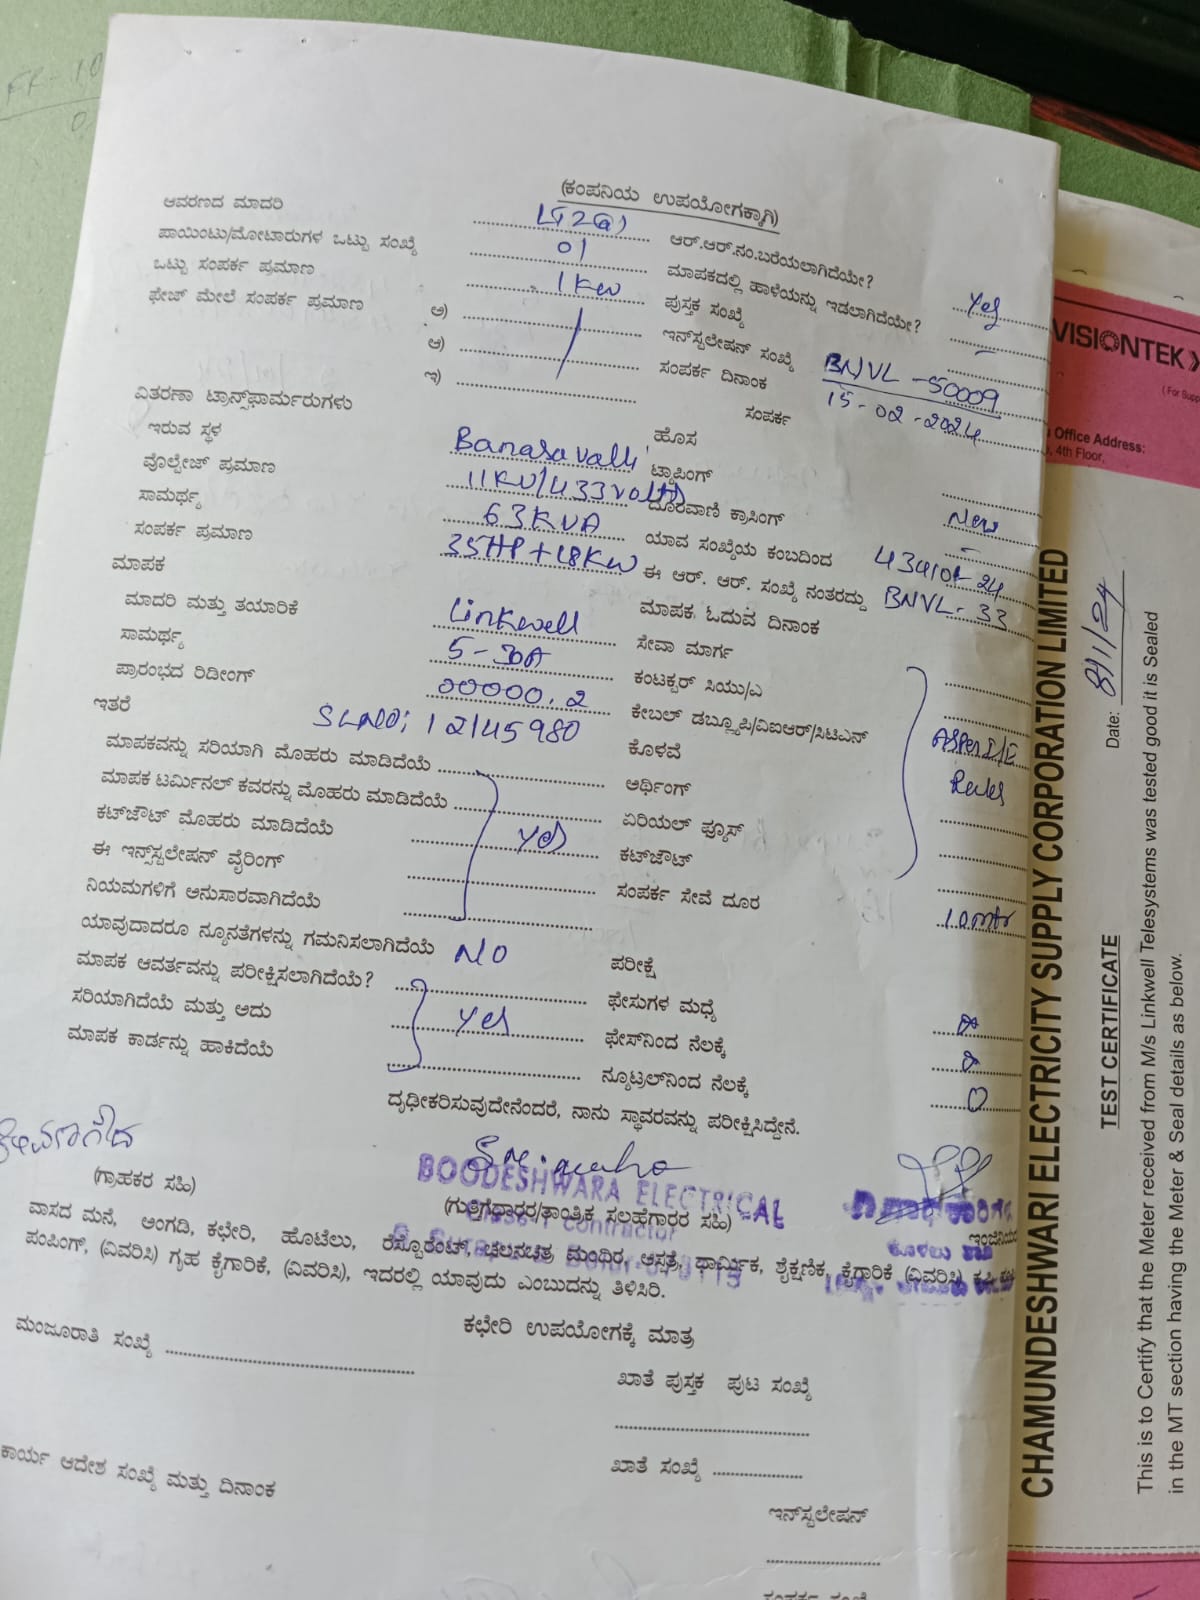 (ಕಂಪನಿಯ ಉಪಯೋಗಕ್ಕಾಗಿ)
ಆವರಣದ ಮಾದರಿ LT2(a)
ಆರ್.ಆರ್.ನಂ.ಬರೆಯಲಾಗಿದೆಯೇ? Yes
ಪಾಯಿಂಟು/ಮೋಟಾರುಗಳ ಒಟ್ಟು ಸಂಖ್ಯೆ 01
ಮಾಪಕದಲ್ಲಿ ಹಾಳೆಯನ್ನು ಇಡಲಾಗಿದೆಯೇ? -
ಒಟ್ಟು ಸಂಪರ್ಕ ಪ್ರಮಾಣ 1KW
ಪುಸ್ತಕ ಸಂಖ್ಯೆ
ಫೇಜ್ ಮೇಲೆ ಸಂಪರ್ಕ ಪ್ರಮಾಣ ಅ)
ಇನ್‌ಸ್ಟಲೇಷನ್ ಸಂಖ್ಯೆ BNVL-50009
ಆ)
ಸಂಪರ್ಕ ದಿನಾಂಕ 15-02-2024
ಇ)
ಸಂಪರ್ಕ
ವಿತರಣಾ ಟ್ರಾನ್ಸ್‌ಫಾರ್ಮರುಗಳು
ಹೊಸ
ಇರುವ ಸ್ಥಳ Banasavalli
ಟ್ಯಾಪಿಂಗ್
ವೊಲ್ಟೇಜ್ ಪ್ರಮಾಣ 11KV/433volts
ದೂರವಾಣಿ ಕ್ರಾಸಿಂಗ್ New
ಸಾಮರ್ಥ್ಯ 63KVA
ಯಾವ ಸಂಖ್ಯೆಯ ಕಂಬದಿಂದ -
ಸಂಪರ್ಕ ಪ್ರಮಾಣ 35HP+18KW
ಈ ಆರ್. ಆರ್. ಸಂಖ್ಯೆ ನಂತರದ್ದು BNVL-33
ಮಾಪಕ
ಮಾಪಕ ಓದುವ ದಿನಾಂಕ
ಮಾದರಿ ಮತ್ತು ತಯಾರಿಕೆ Linkwell
ಸೇವಾ ಮಾರ್ಗ
ಸಾಮರ್ಥ್ಯ 5-30A
ಕಂಟಕ್ಟರ್ ಸಿಯು/ಎ
ಪ್ರಾರಂಭದ ರಿಡೀಂಗ್ 00000.2
ಕೇಬಲ್ ಡಬ್ಲ್ಯೂಪಿ/ವಿಐಆರ್/ಸಿಟಿಎನ್
ಇತರೆ SL.NO: 12145980
ಕೊಳವೆ As per I/E
ಮಾಪಕವನ್ನು ಸರಿಯಾಗಿ ಮೊಹರು ಮಾಡಿದೆಯೆ
ಅರ್ಥಿಂಗ್ Rules
ಮಾಪಕ ಟರ್ಮಿನಲ್ ಕವರನ್ನು ಮೊಹರು ಮಾಡಿದೆಯೆ
ಏರಿಯಲ್ ಫ್ಯೂಸ್
ಕಟ್‌ಜೌಟ್ ಮೊಹರು ಮಾಡಿದೆಯೆ Yes
ಕಟ್‌ಜೌಟ್
ಈ ಇನ್ಸ್‌ಸ್ಟಲೇಷನ್ ವೈರಿಂಗ್
ಸಂಪರ್ಕ ಸೇವೆ ದೂರ 10mtr
ನಿಯಮಗಳಿಗೆ ಅನುಸಾರವಾಗಿದೆಯೆ
ಯಾವುದಾದರೂ ನ್ಯೂನತೆಗಳನ್ನು ಗಮನಿಸಲಾಗಿದೆಯೆ NO
ಪರೀಕ್ಷೆ
ಮಾಪಕ ಆವರ್ತವನ್ನು ಪರೀಕ್ಷಿಸಲಾಗಿದೆಯೆ?
ಫೇಸುಗಳ ಮಧ್ಯೆ
ಸರಿಯಾಗಿದೆಯೆ ಮತ್ತು ಅದು Yes
ಫೇಸ್‌ನಿಂದ ನೆಲಕ್ಕೆ
ಮಾಪಕ ಕಾರ್ಡನ್ನು ಹಾಕಿದೆಯೆ
ನ್ಯೂಟ್ರಲ್‌ನಿಂದ ನೆಲಕ್ಕೆ
ದೃಢೀಕರಿಸುವುದೇನೆಂದರೆ, ನಾನು ಸ್ಥಾವರವನ್ನು ಪರೀಕ್ಷಿಸಿದ್ದೇನೆ.
BOODESHWARA ELECTRICAL
(ಗ್ರಾಹಕರ ಸಹಿ)
(ಗುತ್ತಿಗೆಧಾರರ/ತಾಂತ್ರಿಕ ಸಲಹೆಗಾರರ ಸಹಿ)
contractor
ವಾಸದ ಮನೆ, ಅಂಗಡಿ, ಕಛೇರಿ, ಹೊಟೆಲು, ರೆಸ್ಟೊರೆಂಟ್, ಚಲನಚಿತ್ರ ಮಂಧಿರ, ಆಸ್ಪತ್ರೆ, ಧಾರ್ಮಿಕ, ಶೈಕ್ಷಣಿಕ, ಕೈಗಾರಿಕೆ (ವಿವರಿಸಿ)
ಪಂಪಿಂಗ್, (ವಿವರಿಸಿ) ಗೃಹ ಕೈಗಾರಿಕೆ, (ವಿವರಿಸಿ), ಇದರಲ್ಲಿ ಯಾವುದು ಎಂಬುದನ್ನು ತಿಳಿಸಿರಿ.
ಕಛೇರಿ ಉಪಯೋಗಕ್ಕೆ ಮಾತ್ರ
ಮಂಜೂರಾತಿ ಸಂಖ್ಯೆ
ಖಾತೆ ಪುಸ್ತಕ ಪುಟ ಸಂಖ್ಯೆ
ಕಾರ್ಯ ಆದೇಶ ಸಂಖ್ಯೆ ಮತ್ತು ದಿನಾಂಕ
ಖಾತೆ ಸಂಖ್ಯೆ
ಇನ್‌ಸ್ಟಲೇಷನ್
VISIONTEK
Office Address:
4th Floor,
CHAMUNDESHWARI ELECTRICITY SUPPLY CORPORATION LIMITED
Date: 8/1/24
TEST CERTIFICATE
This is to Certify that the Meter received from M/s Linkwell Telesystems was tested good it is Sealed
in the MT section having the Meter & Seal details as below.